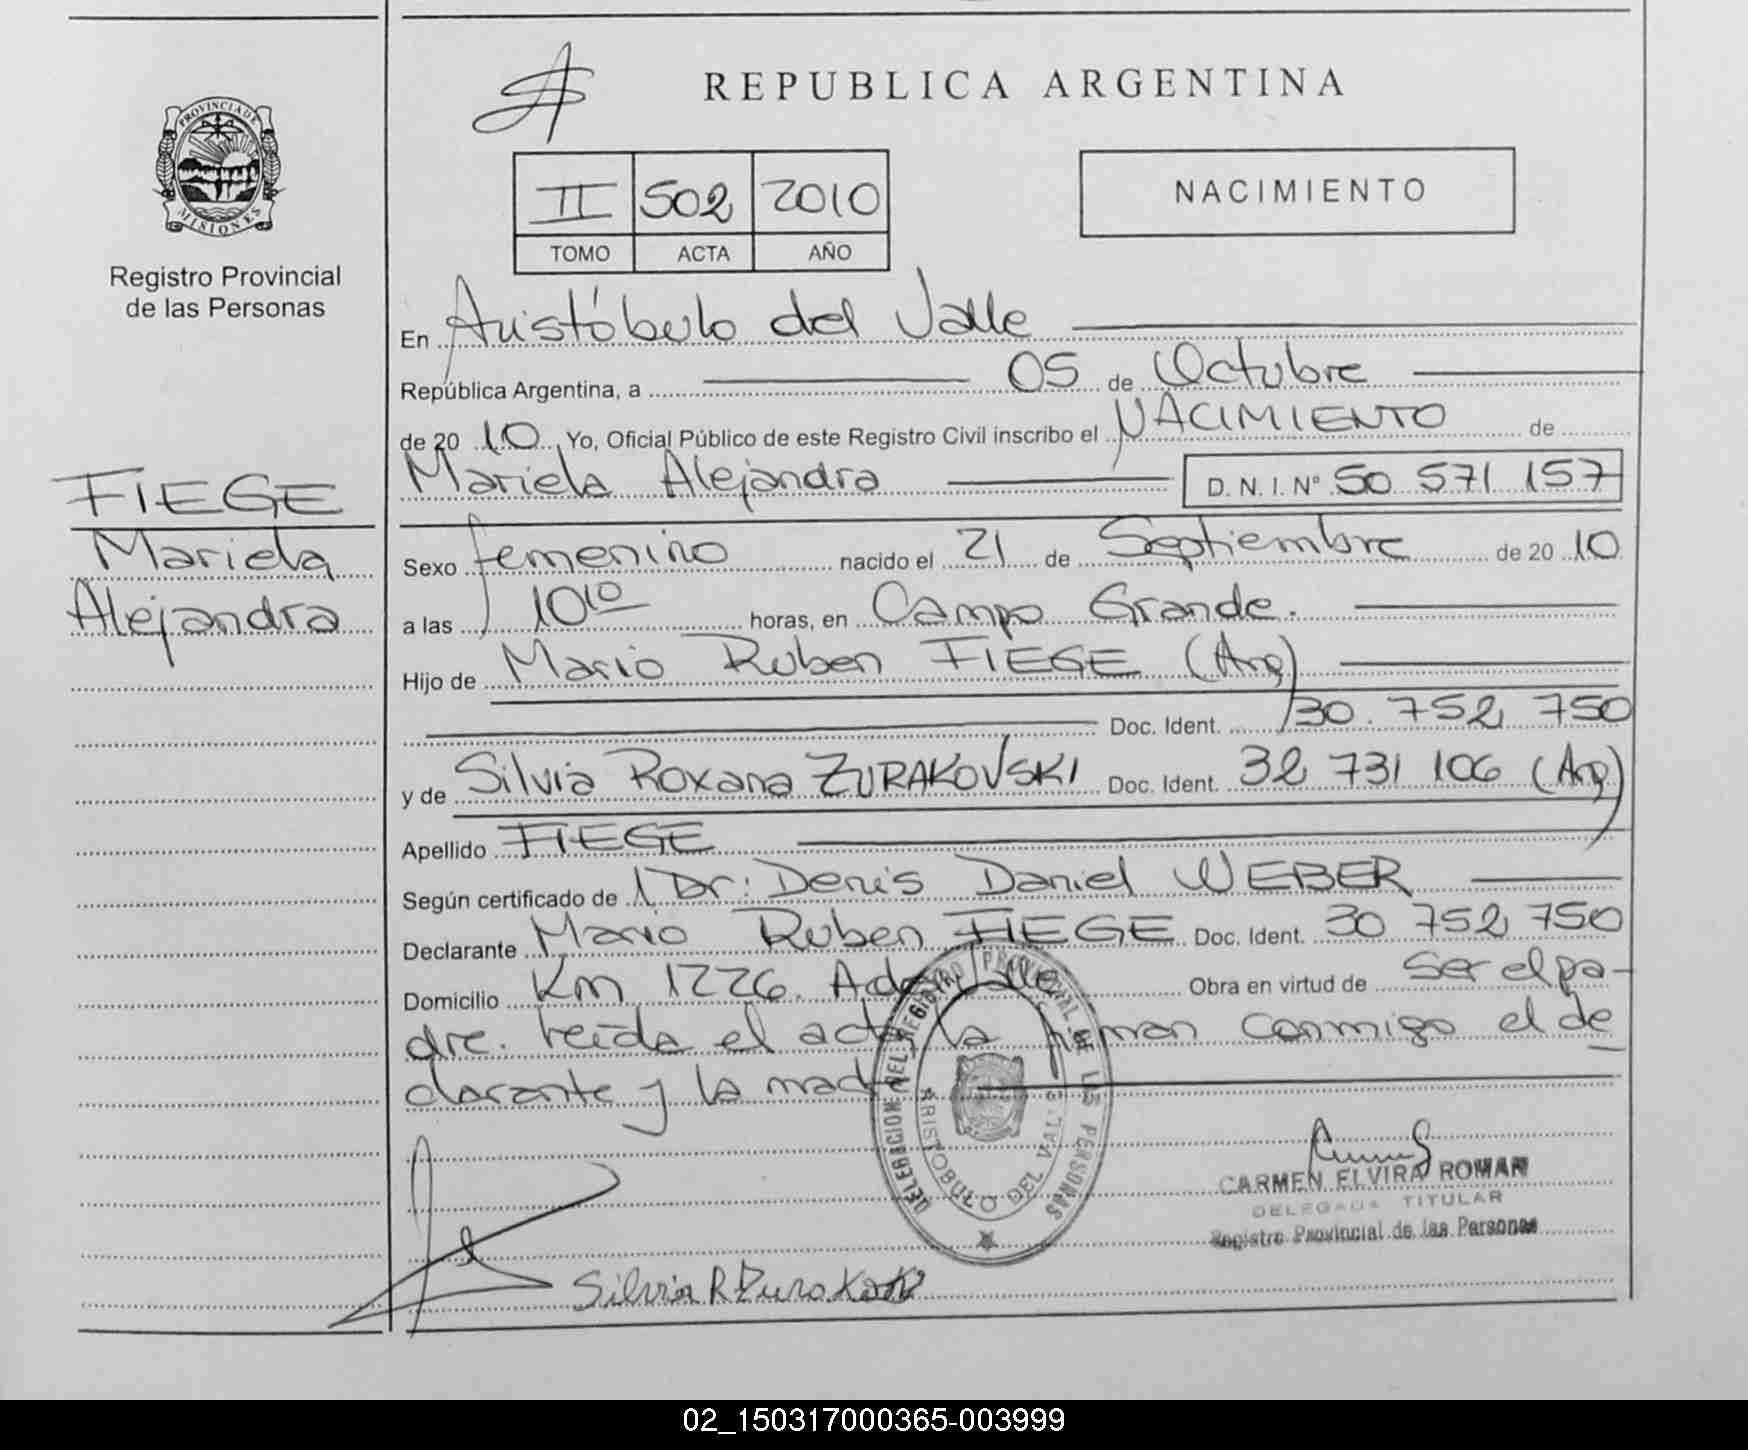 REPUBLICA ARGENTINA
PROVINCIA DE MISIONES
Registro Provincial
de las Personas
II 502 2010
TOMO ACTA AÑO
NACIMIENTO
En Aristóbulo del Valle
República Argentina, a 05 de Octubre
de 20 10 Yo, Oficial Público de este Registro Civil inscribo el NACIMIENTO de
Mariela Alejandra D. N. I. Nº 50 571 157
FIEGE
Mariela
Alejandra
Sexo femenino nacido el 21 de Septiembre de 20 10
a las 10 10 horas, en Campo Grande.
Hijo de Mario Ruben FIEGE (Arg)
Doc. Ident. 30. 752 750
y de Silvia Roxana ZURAKOVSKI Doc. Ident. 32 731 106 (Arg)
Apellido FIEGE
Según certificado de Dr: Denis Daniel WEBER
Declarante Mario Ruben FIEGE Doc. Ident. 30 752 750
Domicilio Km 1226. A del Valle Obra en virtud de ser el pa-
dre. leída el acta la firman conmigo el de
clarante y la madre
DELEGACION DEL REGISTRO PROVINCIAL DE LAS PERSONAS
ARISTOBULO DEL VALLE
CARMEN ELVIRA ROMAN
DELEGADA TITULAR
Registro Provincial de las Personas
Silvia R
02_150317000365-003999